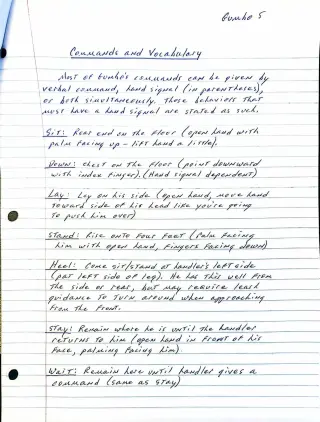 Gumbo 5
Commands and Vocabulary
Most of Gumbo's commands can be given by
verbal command, hand signal (in parentheses),
or both simultaneously. Those behaviors that
must have a hand signal are stated as such.
Sit: Rear end on the floor (open hand with
palm facing up - lift hand a little).
Down: Chest on the floor (point downward
with index finger). (Hand signal dependent)
Lay: Lay on his side (open hand, move hand
toward side of his head like you're going
to push him over)
Stand: Rise onto four feet (palm facing
him with open hand, fingers facing down)
Heel: Come sit/stand at handler's left side
(pat left side of leg). He has this well from
the side or rear, but may require leash
guidance to turn around when approaching
from the front.
Stay: Remain where he is until the handler
returns to him (open hand in front of his
face, palming facing him)
Wait: Remain here until handler gives a
command (same as stay)